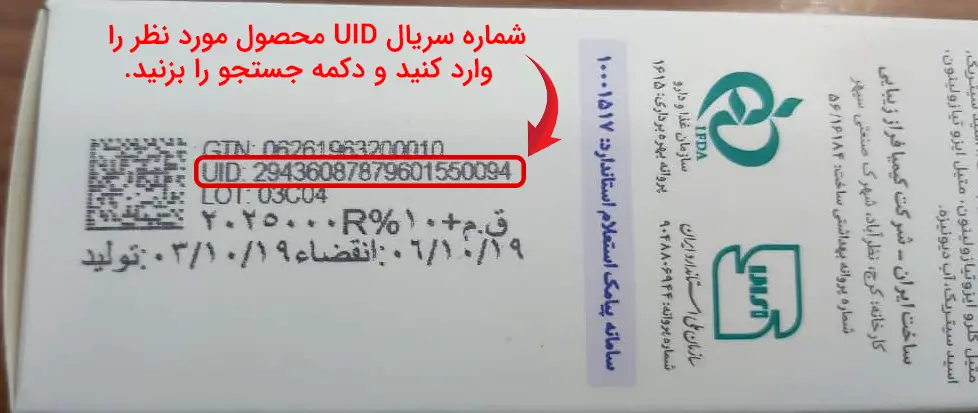 شماره سریال UID محصول مورد نظر را
وارد کنید و دکمه جستجو را بزنید.
GTN: 06261963200010
UID: 29436087879601550094
LOT: 03C04
ق.م+۱۰%R۲۰۲۵۰۰۰
تولید:۰۳/۱۰/۱۹ انقضاء:۰۶/۱۰/۱۹
سامانه پیامک استعلام استاندارد: ۱۰۰۰۱۵۱۷
IFDA
سازمان غذا و دارو
پروانه بهره برداری: ۱۶۱۵
سازمان ملی استاندارد ایران
شماره پروانه: ۹۰۴۸۸۰۶۹۴۴
ساخت ایران - شرکت کیمیا فراز زیبایی
کارخانه: کرج، نظرآباد، شهرک صنعتی سپهر
شماره پروانه بهداشتی ساخت: ۵۶/۱۶۱۸۴
سیتریک،
متیل ایزو تیازولینون،
متیل کلرو ایزوتیازولینون،
اسید سیتریک، آب دیونیزه.